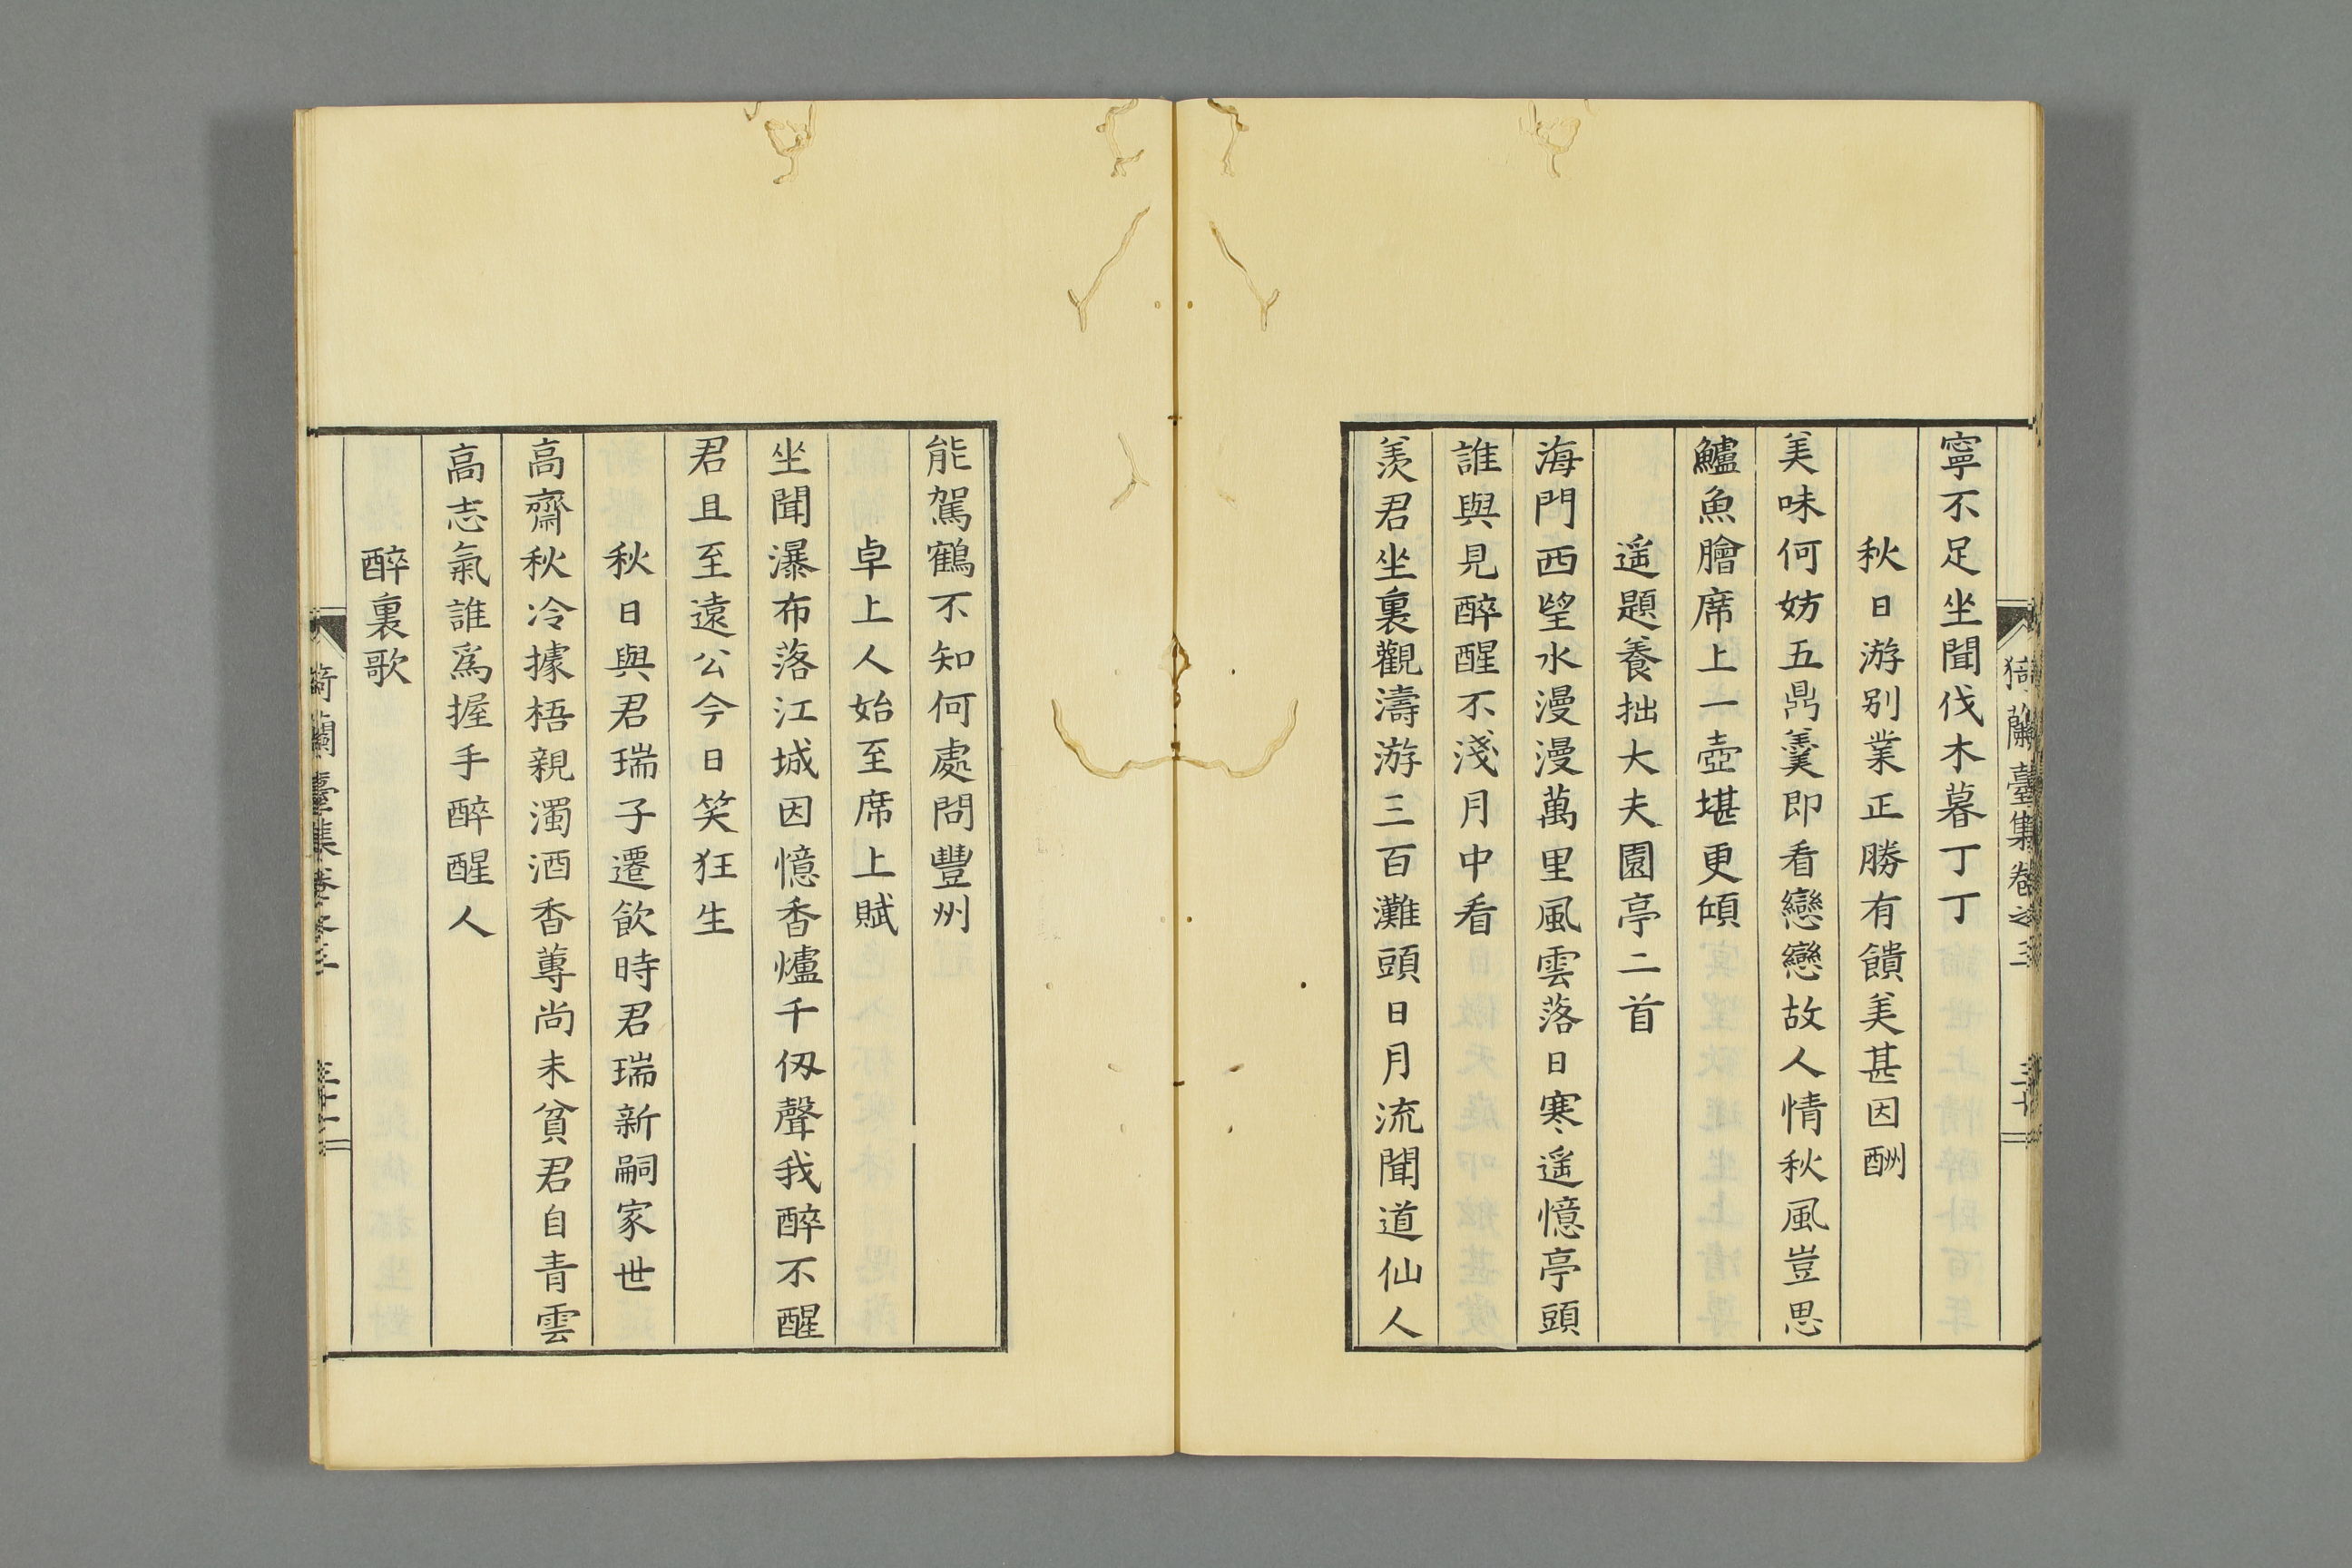 寧不足坐聞伐木暮丁丁
秋日游别業正勝有饋美甚因酬
美味何妨五鼎羹即看戀戀故人情秋風豈思
鱸魚膾席上一壺堪更傾
遥題養拙大夫園亭二首
海門西望水漫漫萬里風雲落日寒遥憶亭頭
誰與見醉醒不淺月中看
羨君坐裏觀濤游三百灘頭日月流聞道仙人
能駕鶴不知何處問豐州
卓上人始至席上賦
坐聞瀑布落江城因憶香爐千仭聲我醉不醒
君且至遠公今日笑狂生
秋日與君瑞子遷飲時君瑞新嗣家世
高齋秋冷據梧親濁酒香蓴尚未貧君自青雲
高志氣誰爲握手醉醒人
醉裏歌
猗蘭臺集卷之三